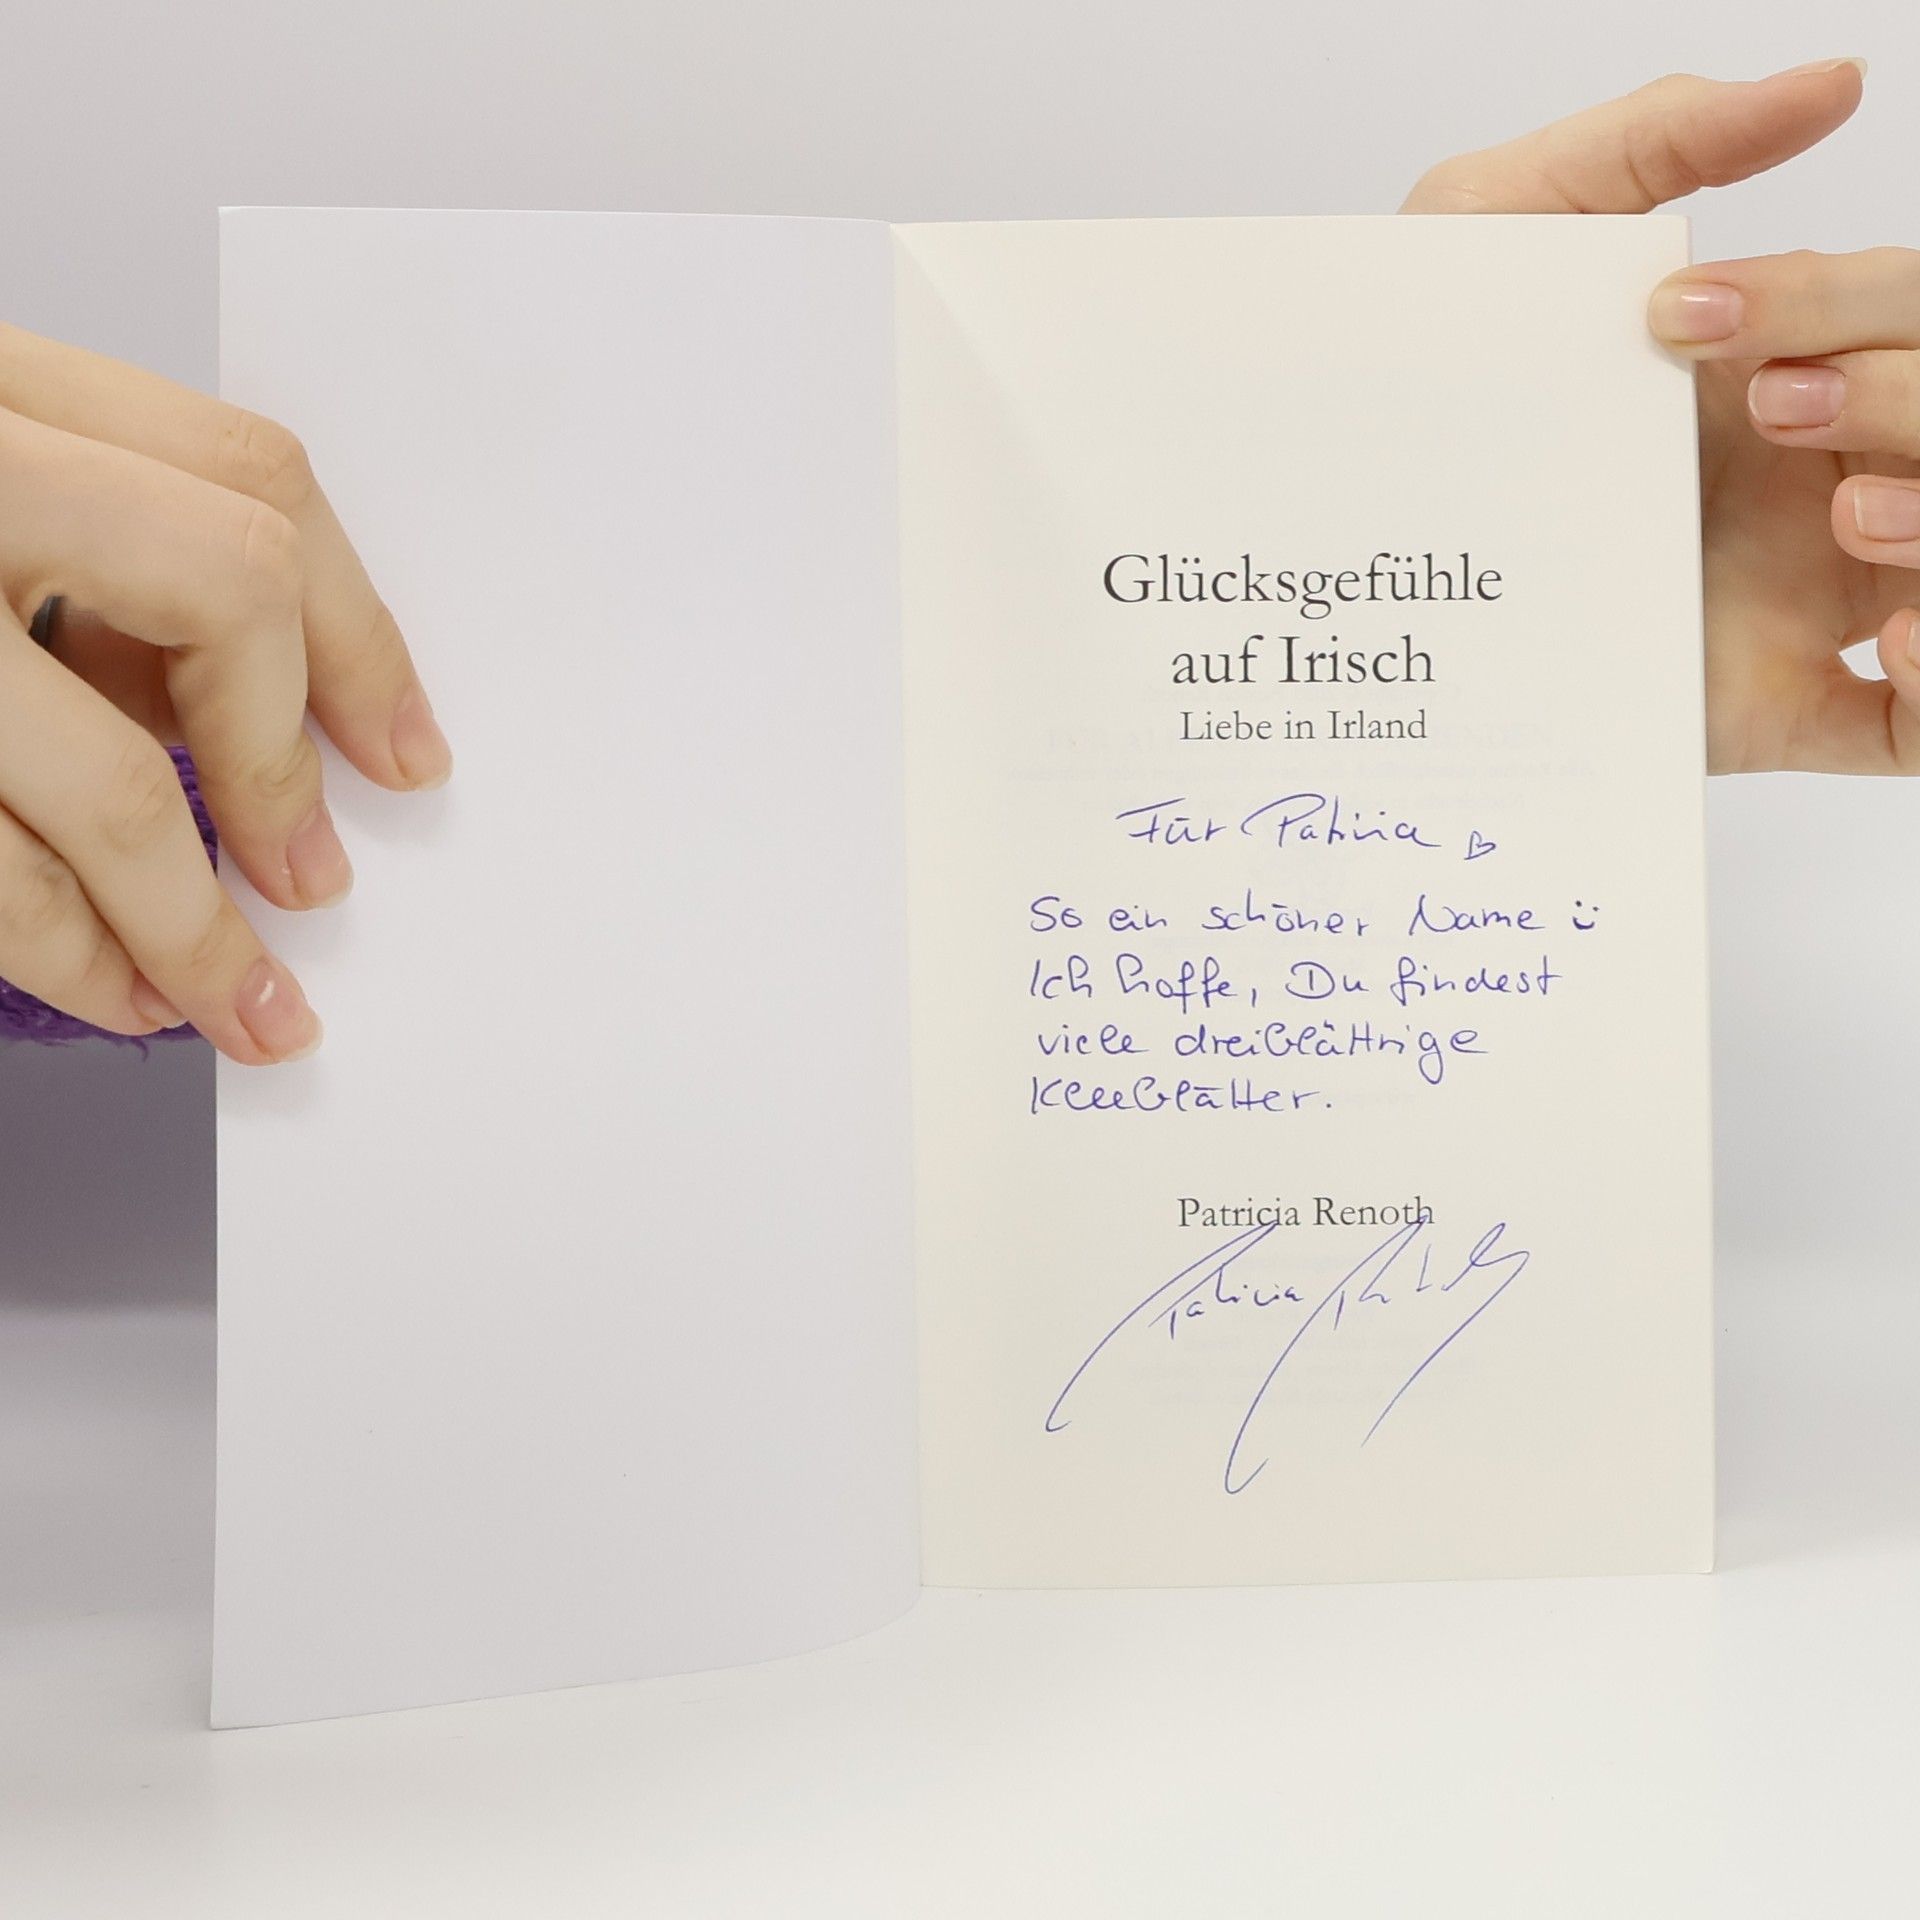 Glücksgefühle
auf Irisch
Liebe in Irland
Für Patricia
So ein schöner Name
Ich hoffe, Du findest
viele dreiblättrige
Kleeblätter.
Patricia Renoth
Patricia Renoth